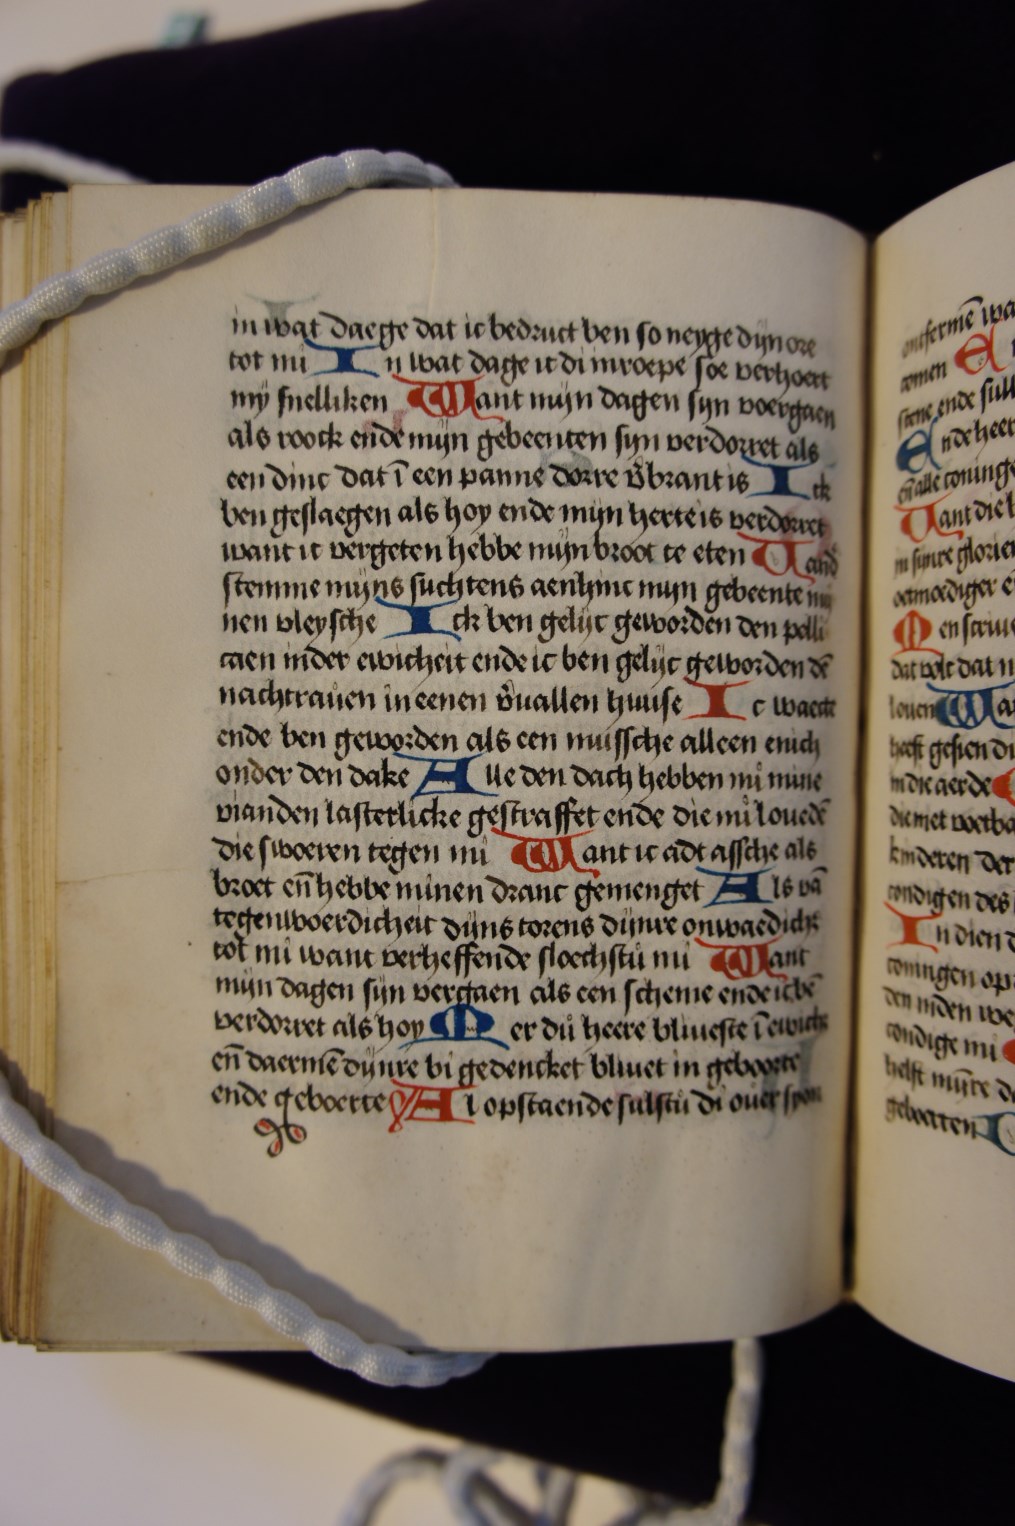 in wat daege dat ic bedruct ben so neyge dijn ore
tot mi In wat dage ic di inroepe soe verhoert
my snelliken Want mijn dagen sijn voergaen
als roock ende mijn gebeenten sijn verdorret als
een dinc dat ī een panne dorre v̄brant is Ick
ben geslaegen als hoy ende mijn herte is verdorret
want ic vergeten hebbe mijn broot te eten Vand
stemme mijns suchtens aenhinc mijn gebeente mi
nen vleysche Ick ben gelijc geworden den pelli
caen inder ewicheit ende ic ben gelijc geworden dē
nachtrauen in eenen v̄uallen huise Ic waeck
ende ben geworden als een mussche alleen enich
onder den dake Alle den dach hebben mi mine
vianden lasterlicke gestraffet ende die mi louedē
die swoeren tegen mi Want ic adt assche als
broet en̄ hebbe minen dranc gemenget Als vā
tegenwoerdicheit dijns torens dijnre onwaedich
tot mi want verheffende sloechstu mi Want
mijn dagen sijn vergaen als een scheme ende ic bē
verdorret als hoy Mer du heere bliueste ī ewich
en̄ daermē dijnre bi gedencket bliuet in geboorte
ende geboerte Al opstaende sulstu di ouer syon
ontfermē wa
comen
stene ende sull
Ende heer
en̄ alle coninge
Want die
in sijnre glorie
oetmoediger
Men scriue
dat volc dat
louen Wa
heeft gesien
in die aerde
die met voetba
kinderen der
condigen des
In dien
coningen op
den inden we
condige mi
helft mijnre
geboerten